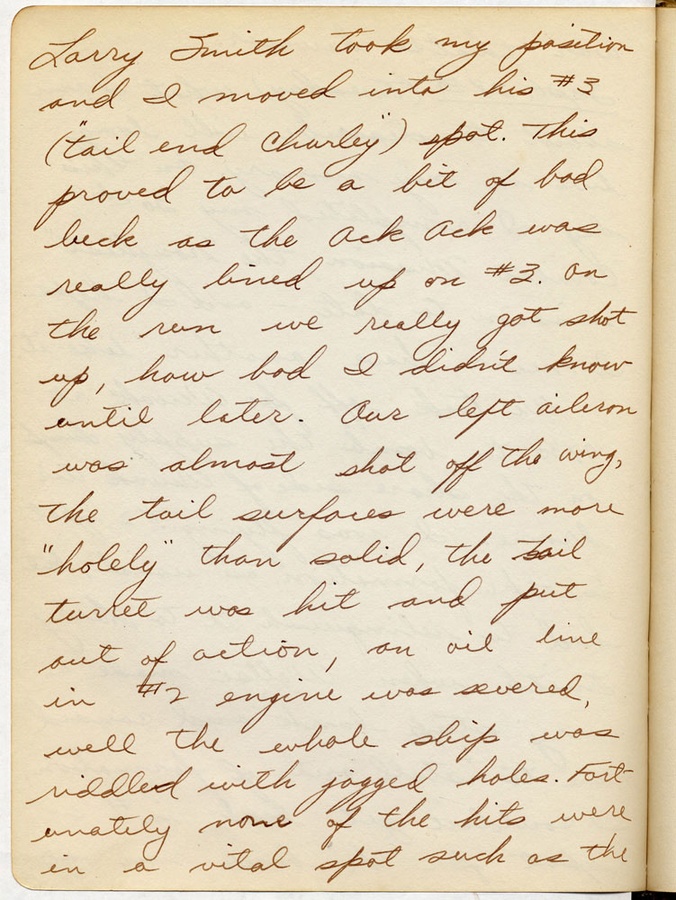 Larry Smith took my position
and I moved into his #3
("tail end Charley") spot. This
proved to be a bit of bad
luck as the Ack Ack was
really lined up on #3. On
the run we really got shot
up, how bad I didn't know
until later. Our left aileron
was almost shot off the wing,
the tail surfaces were more
"holely" than solid, the tail
turret was hit and put
out of action, an oil line
in #2 engine was severed,
well the whole ship was
riddled with jagged holes. Fort-
unately none of the hits were
in a vital spot such as the